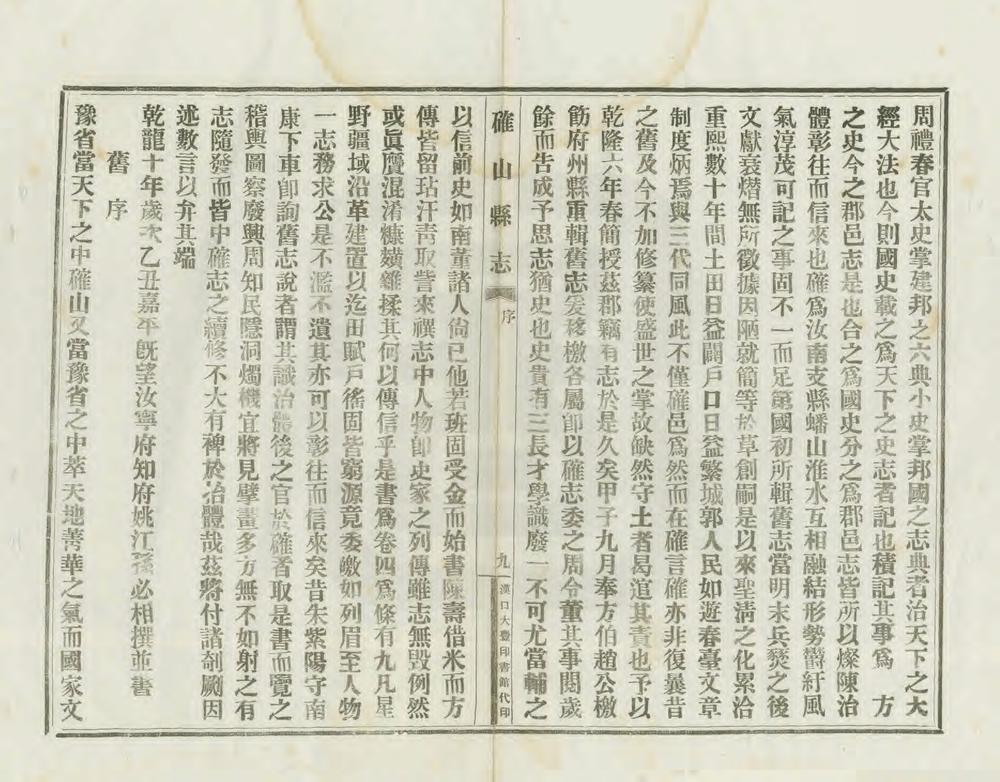 周禮春官太史掌建邦之六典小史掌邦國之志典者治天下之大
經大法也今則國史載之爲天下之史志者記也積記其事爲　方
之史今之郡邑志是也合之爲國史分之爲郡邑志皆所以燦陳治
體彰往而信來也確爲汝南支縣蟠山淮水互相融結形勢欝紆風
氣淳茂可記之事固不一而足第國初所輯舊志當明末兵燹之後
文獻衰熸無所徵據因陋就簡等於草創嗣是以來聖淸之化累洽
重熙數十年間土田日益闢戶口日益繁城郭人民如遊春臺文章
制度炳焉與三代同風此不僅確邑爲然而在確言確亦非復曩昔
之舊及今不加修纂使盛世之掌故缺然守土者曷逭其責也予以
乾隆六年春簡授茲郡竊有志於是久矣甲子九月奉方伯趙公檄
飭府州縣重輯舊志爰移檄各屬卽以確志委之周令董其事閱歲
餘而告成予思志猶史也史貴有三長才學識廢一不可尤當輔之
確山縣志
序
九
漢口大豐印書館代印
以信前史如南董諸人尙已他若班固受金而始書陳壽借米而方
傳皆留玷汗靑取訾來禩志中人物卽史家之列傳雖志無毀例然
或眞贋混淆糠𥢶雜揉其何以傳信乎是書爲卷四爲條有九凡星
野疆域沿革建置以迄田賦戶徭固皆窮源竟委皦如列眉至人物
一志務求公是不濫不遺其亦可以彰往而信來矣昔朱紫陽守南
康下車卽詢舊志說者謂其識治體後之官於確者取是書而覽之
稽輿圖察廢興周知民隱洞燭機宜將見擘畫多方無不如射之有
志隨發而皆中確志之續修不大有裨於治體哉茲將付諸剞劂因
述數言以弁其端
乾龍十年歲次乙丑嘉平旣望汝寧府知府姚江孫必相撰並書
舊序
豫省當天下之中確山又當豫省之中萃天地菁華之氣而國家文